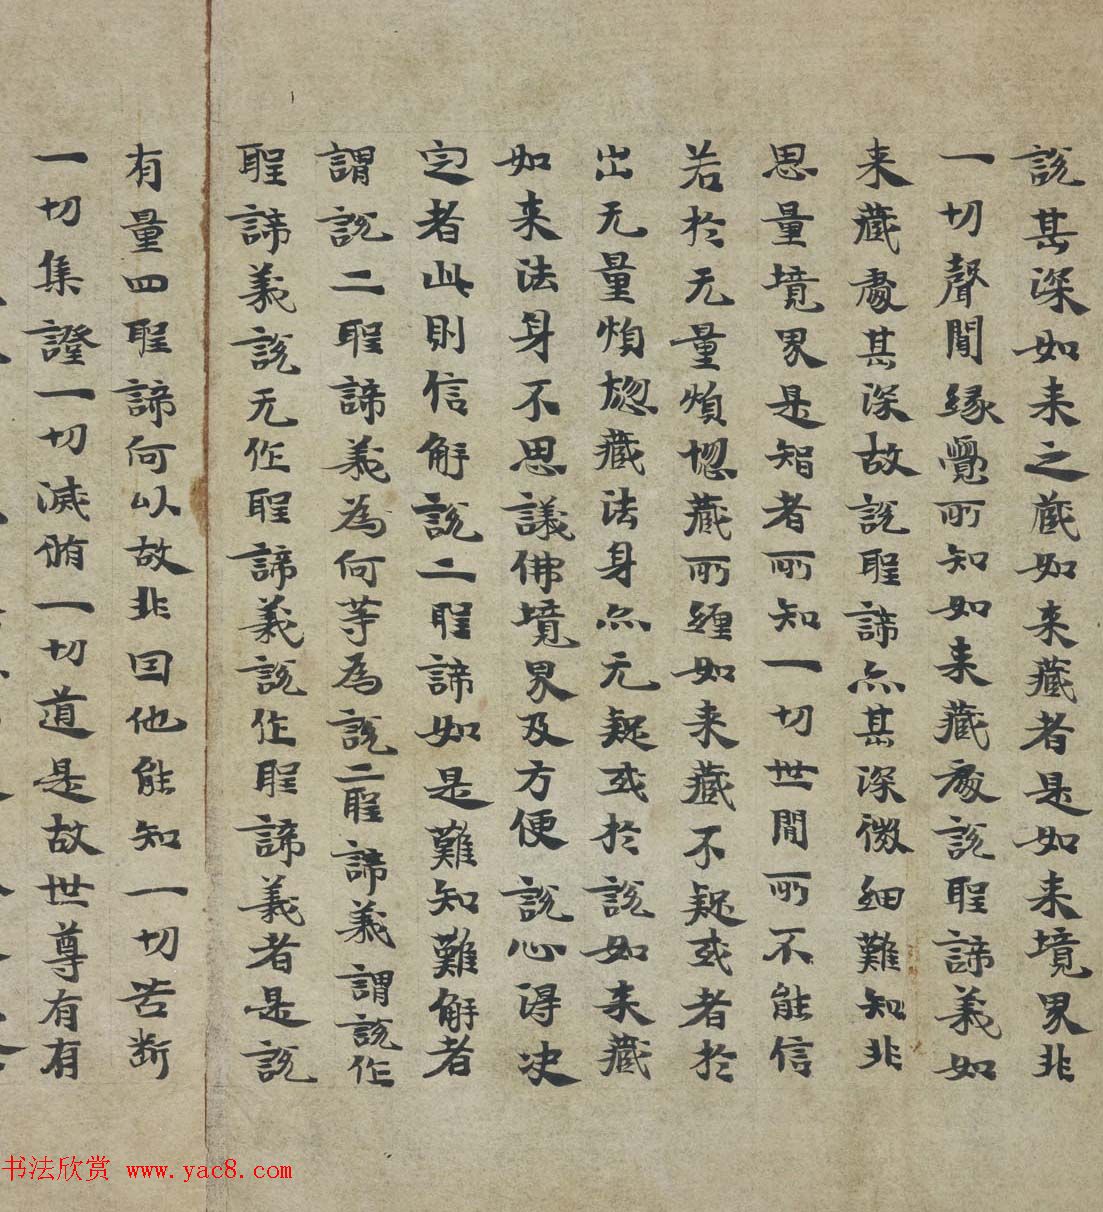 說甚深如来之藏如来藏者是如来境界非
一切聲聞緣覺所知如来藏處說聖諦義如
来藏處甚深故說聖諦亦甚深微細難知非
思量境界是智者所知一切世間所不能信
若於无量煩惱藏所纏如来藏不疑或者於
出无量煩惱藏法身亦无疑或於說如来藏
如来法身不思議佛境界及方便說心得决
定者此則信解說二聖諦如是難知難解者
謂說二聖諦義為何等為說二聖諦義謂說作
聖諦義說无作聖諦義說作聖諦義者是說
有量四聖諦何以故非因他能知一切苦断
一切集證一切滅脩一切道是故世尊有有
书法欣赏 www.yac8.com